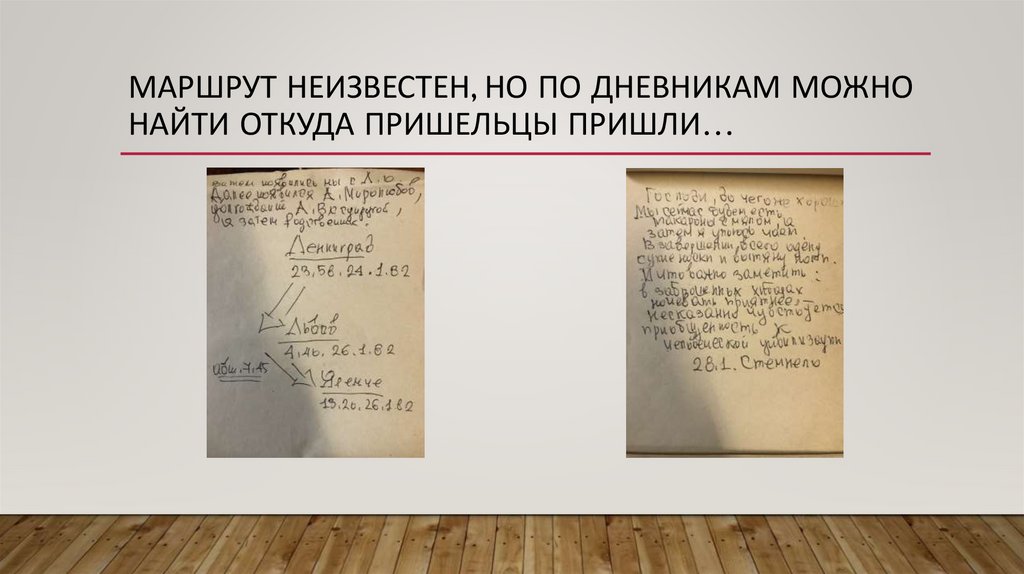 МАРШРУТ НЕИЗВЕСТЕН, НО ПО ДНЕВНИКАМ МОЖНО
НАЙТИ ОТКУДА ПРИШЕЛЬЦЫ ПРИШЛИ...
затем появились мы с Л.
Далее появился А. Миролюбов,
А.
а затем родственник.
Ленинград
23,58. 24.1.82
Львов
4,40. 26.1.82
7,45
Яремче
13,20, 26.1.82
Господи, до чего же хорошо
Мы сейчас будем есть
макароны с мясом, а
затем я упьюсь чаем.
В завершении всего одену
сухие носки и вытяну ноги.
И что важно заметить:
в заброшенных хуторах
ночевать приятнее,
несказанно чувствуется
приобщенность к
человеческой цивилизации
28.1. Стемпель